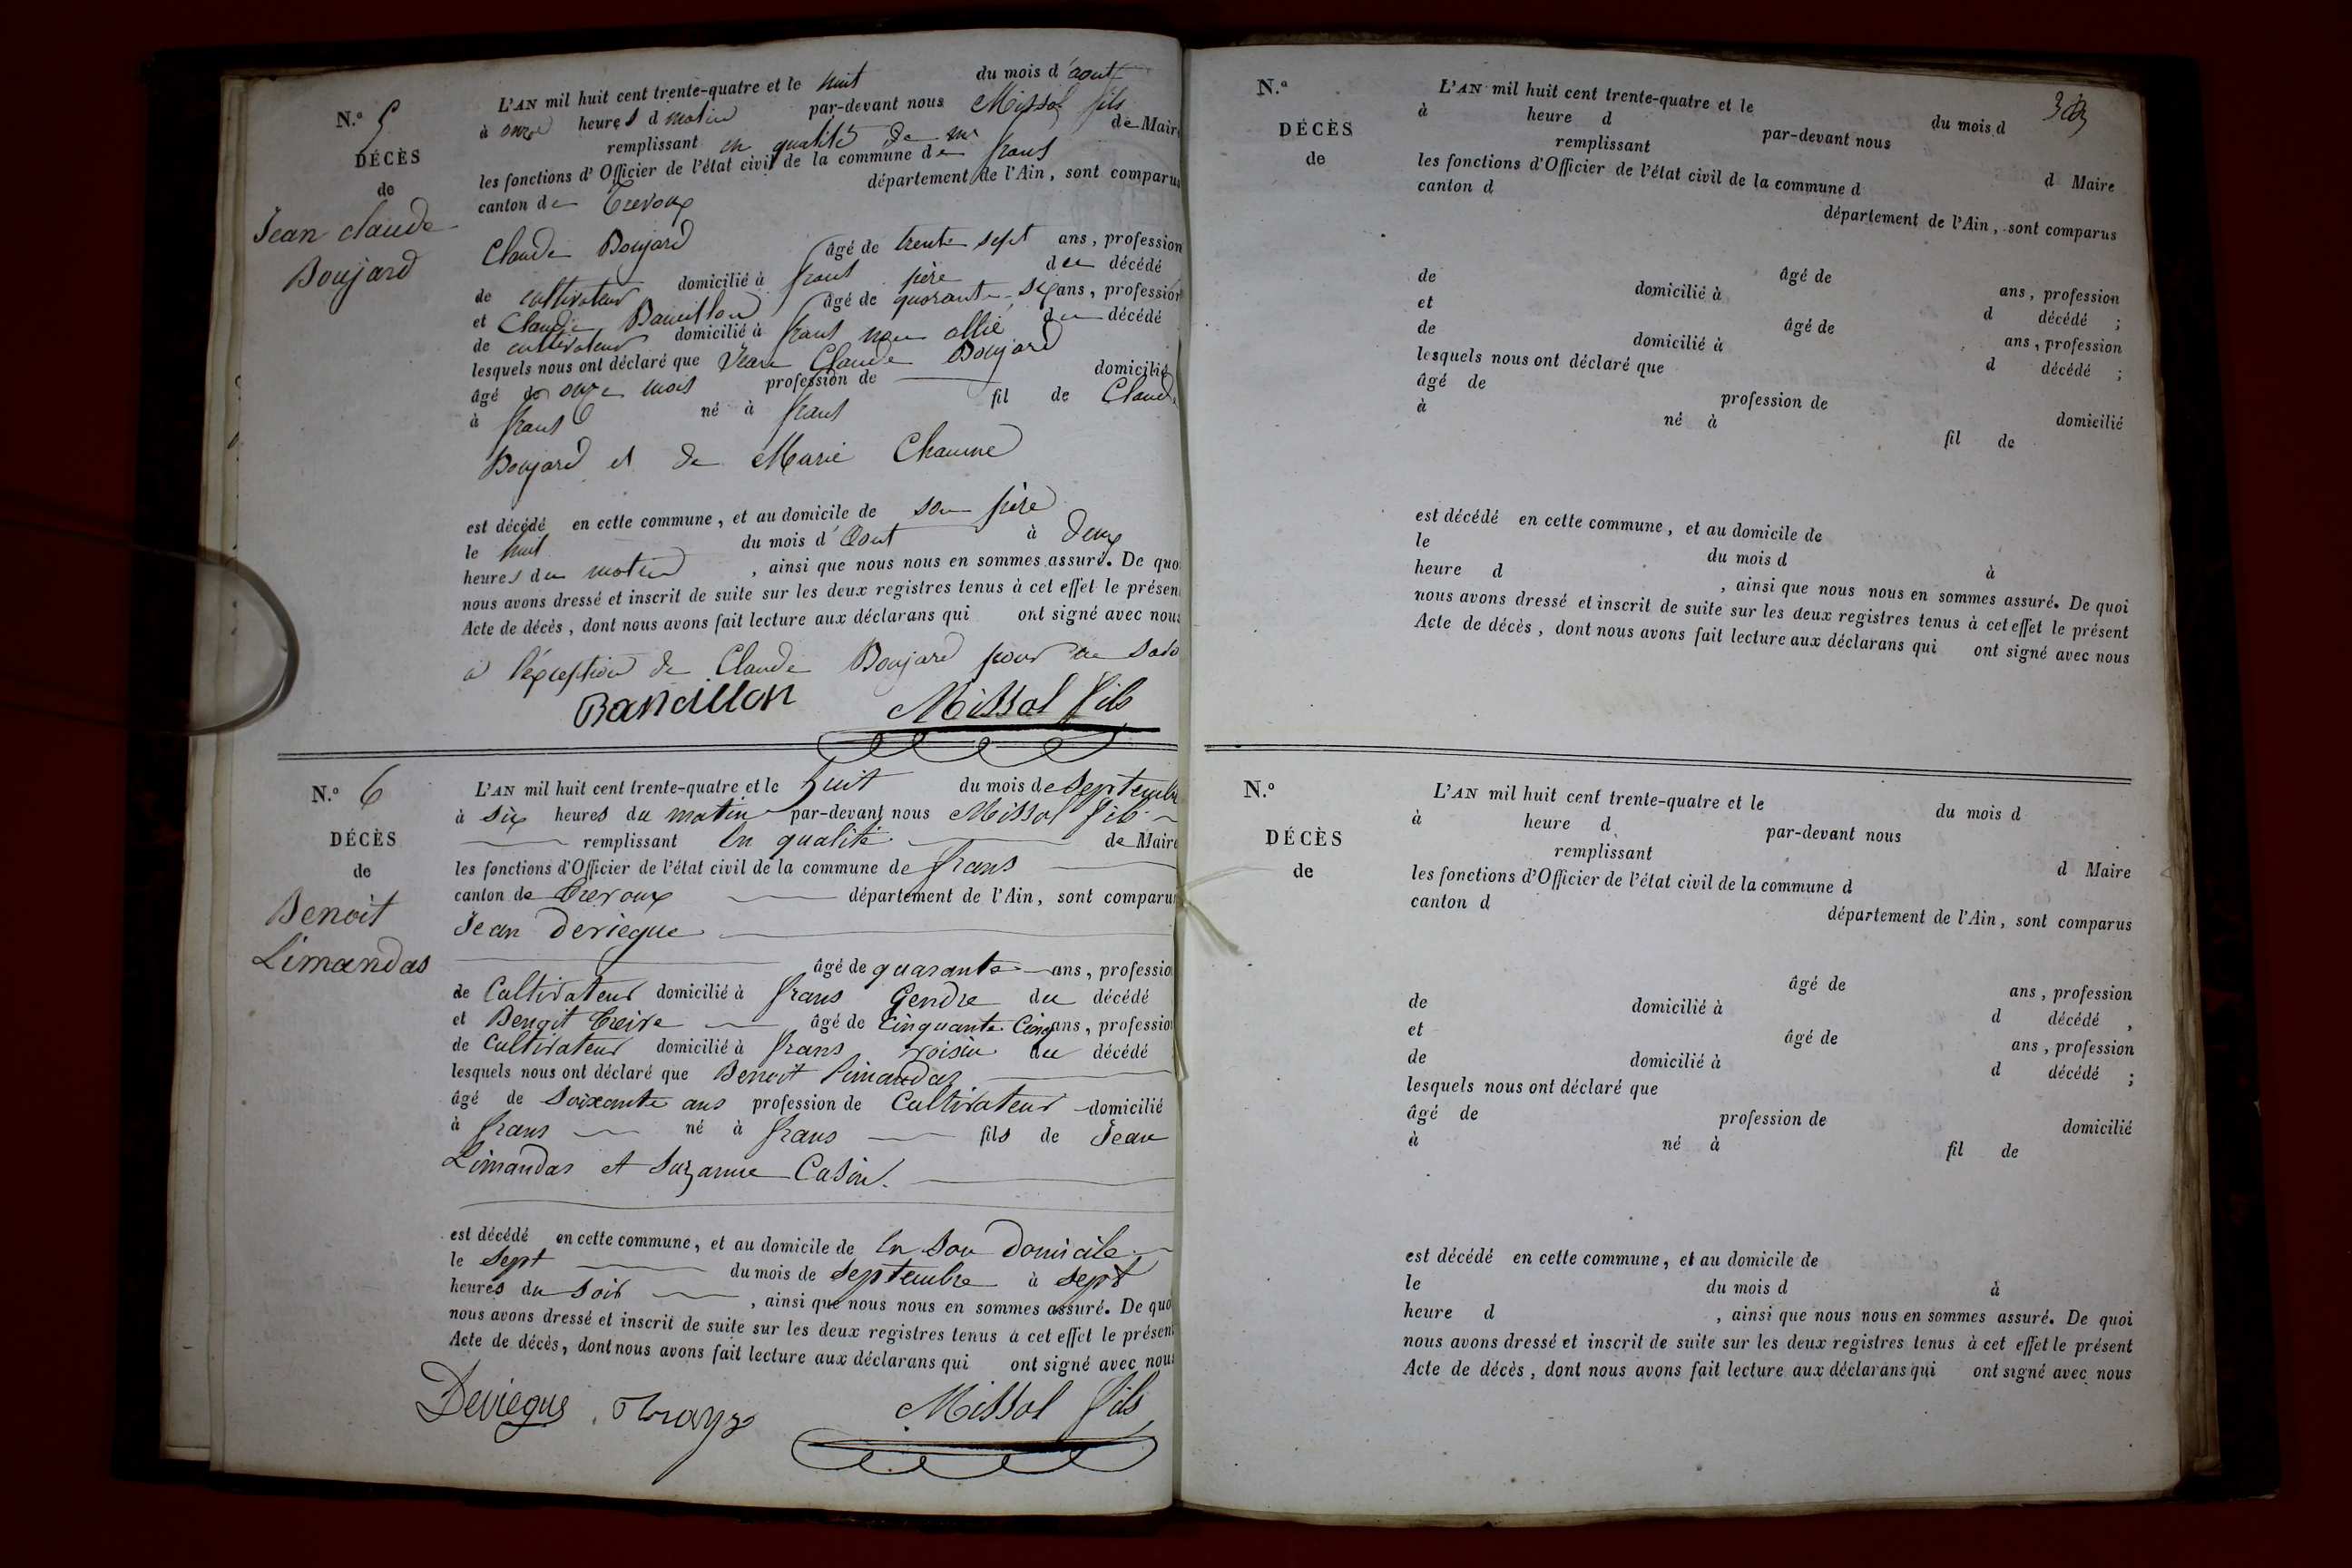 N.º 5
DÉCÈS
de
Jean claude
Boujard
L'AN mil huit cent trente-quatre et le huit du mois d'aout
à onze heures d matin par-devant nous Missol fils
remplissant en qualité de Maire
les fonctions d'Officier de l'état civil de la commune de frans
canton de Trevoux département de l'Ain, sont comparus
Claude Boujard âgé de trente sept ans, profession
de cultivateur domicilié à frans père du décédé
et Claude Bancillon âgé de quarante six ans, profession
de cultivateur domicilié à frans non allié du décédé
lesquels nous ont déclaré que Jean Claude Boujard
âgé de onze mois profession de domicilié
à frans né à frans fil de Claude
Boujard et de Marie Chaume
est décédé en cette commune, et au domicile de son père
le huit du mois d'Aout à deux
heures du matin, ainsi que nous nous en sommes assuré. De quoi
nous avons dressé et inscrit de suite sur les deux registres tenus à cet effet le présent
Acte de décès, dont nous avons fait lecture aux déclarans qui ont signé avec nous
à l'exception de Claude Boujard pour ne
Bancillon Missol fils
N.º 6
DÉCÈS
de
Benoit
Limandas
L'AN mil huit cent trente-quatre et le huit du mois de Septembre
à six heures du matin par-devant nous Missol fils
remplissant en qualité de Maire
les fonctions d'Officier de l'état civil de la commune de frans
canton de Trevoux département de l'Ain, sont comparus
Jean Deriegue
âgé de quarante ans, profession
de Cultivateur domicilié à frans Gendre du décédé
et Benoit âgé de Cinquante Cinq ans, profession
de Cultivateur domicilié à frans voisin du décédé
lesquels nous ont déclaré que Benoit Limandas
âgé de Soixante ans profession de Cultivateur domicilié
à frans né à frans fils de Jean
Limandas et Suzanne Casin.
est décédé en cette commune, et au domicile de en Son Domicile
le Sept du mois de Septembre à Sept
heures du Soir, ainsi que nous nous en sommes assuré. De quoi
nous avons dressé et inscrit de suite sur les deux registres tenus à cet effet le présent
Acte de décès, dont nous avons fait lecture aux déclarans qui ont signé avec nous
Deriegue Missol fils
N.º
DÉCÈS
de
L'AN mil huit cent trente-quatre et le du mois d
à heure d par-devant nous
remplissant d Maire
les fonctions d'Officier de l'état civil de la commune d
canton d département de l'Ain, sont comparus
âgé de ans, profession
de domicilié à d décédé ;
et âgé de ans, profession
de domicilié à d décédé ;
lesquels nous ont déclaré que
âgé de profession de domicilié
à né à fil de
est décédé en cette commune, et au domicile de
le du mois d à
heure d , ainsi que nous nous en sommes assuré. De quoi
nous avons dressé et inscrit de suite sur les deux registres tenus à cet effet le présent
Acte de décès, dont nous avons fait lecture aux déclarans qui ont signé avec nous
N.º
DÉCÈS
de
L'AN mil huit cent trente-quatre et le du mois d
à heure d par-devant nous
remplissant d Maire
les fonctions d'Officier de l'état civil de la commune d
canton d département de l'Ain, sont comparus
âgé de ans, profession
de domicilié à d décédé ,
et âgé de ans, profession
de domicilié à d décédé ;
lesquels nous ont déclaré que
âgé de profession de domicilié
à né à fil de
est décédé en cette commune, et au domicile de
le du mois d à
heure d , ainsi que nous nous en sommes assuré. De quoi
nous avons dressé et inscrit de suite sur les deux registres tenus à cet effet le présent
Acte de décès, dont nous avons fait lecture aux déclarans qui ont signé avec nous